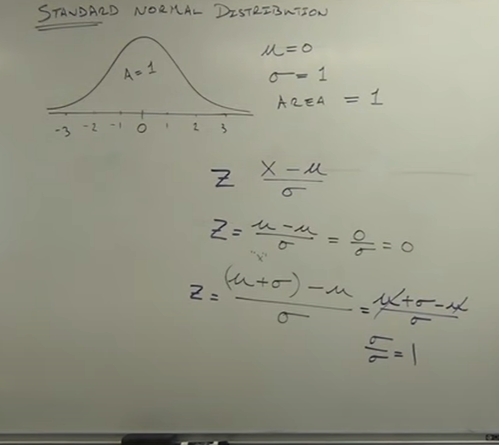 STANDARD NORMAL DISTRIBUTION
A = 1
-3 -2 -1 0 1 2 3
μ = 0
σ = 1
AREA = 1
Z X - μ / σ
Z = μ - μ / σ = 0 / σ = 0
"x"
Z = (μ + σ) - μ / σ = μ + σ - μ / σ
σ / σ = 1